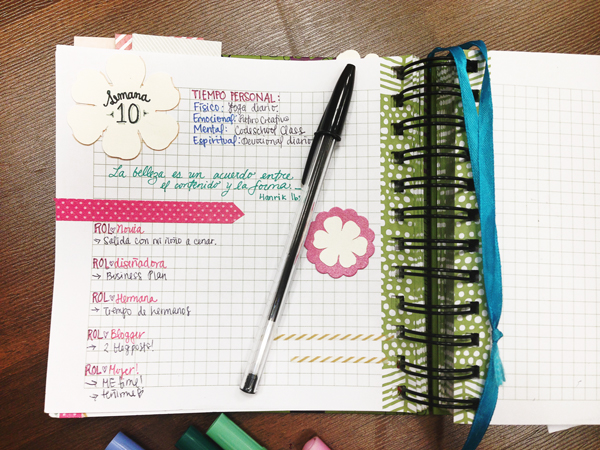 Semana
10
TIEMPO PERSONAL:
Físico: Yoga diario.
Emocional: Retro Creativo
Mental: Codeschool Class
Espiritual: Devocional diario
La belleza es un acuerdo entre
el contenido y la forma.
Henrik
ROL Novia
→ Salida con mi niño a cenar.
ROL diseñadora
→ Business Plan
ROL Hermana
→ Tiempo de hermanos
ROL Blogger
→ 2 blogposts!
ROL Mujer!
→ ME time!
→ teñirme